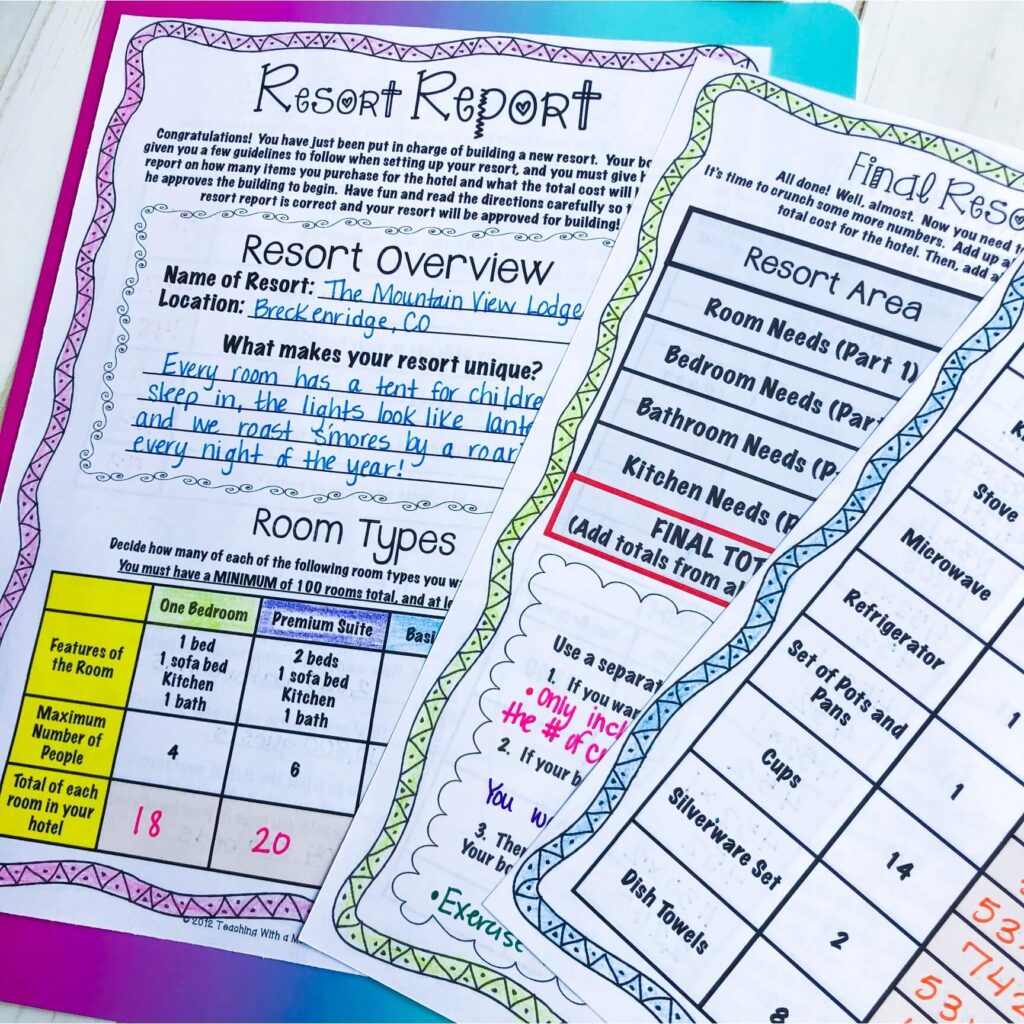 Resort Report
Congratulations! You have just been put in charge of building a new resort. Your
given you a few guidelines to follow when setting up your resort, and you must give
report on how many items you purchase for the hotel and what the total cost will
he approves the building to begin. Have fun and read the directions carefully so
resort report is correct and your resort will be approved for building!
Resort Overview
Name of Resort: The Mountain View Lodge
Location: Breckenridge, CO
What makes your resort unique?
Every room has a tent for
sleep in, the lights look like
and we roast s'mores by a
every night of the year!
Room Types
Decide how many of each of the following room types you
You must have a MINIMUM of 100 rooms total, and at
One Bedroom
Premium Suite
Features of
the Room
1 bed
1 sofa bed
Kitchen
1 bath
2 beds
1 sofa bed
Kitchen
1 bath
Maximum
Number of
People
4
6
Total of each
room in your
hotel
18
20
© 2012 Teaching With a
Final
All done! Well, almost. Now you need
It's time to crunch some more numbers. Add up
total cost for the hotel. Then, add
Resort Area
Room Needs (Part 1)
Bedroom Needs
Bathroom Needs
Kitchen Needs
FINAL
(Add totals from
Use a
1. If you
• Only
the # of
2. If your
You
3.
Your
•
Stove
Microwave
Refrigerator
1
Set of Pots and
Pans
1
Cups
14
Silverware Set
2
Dish Towels
8